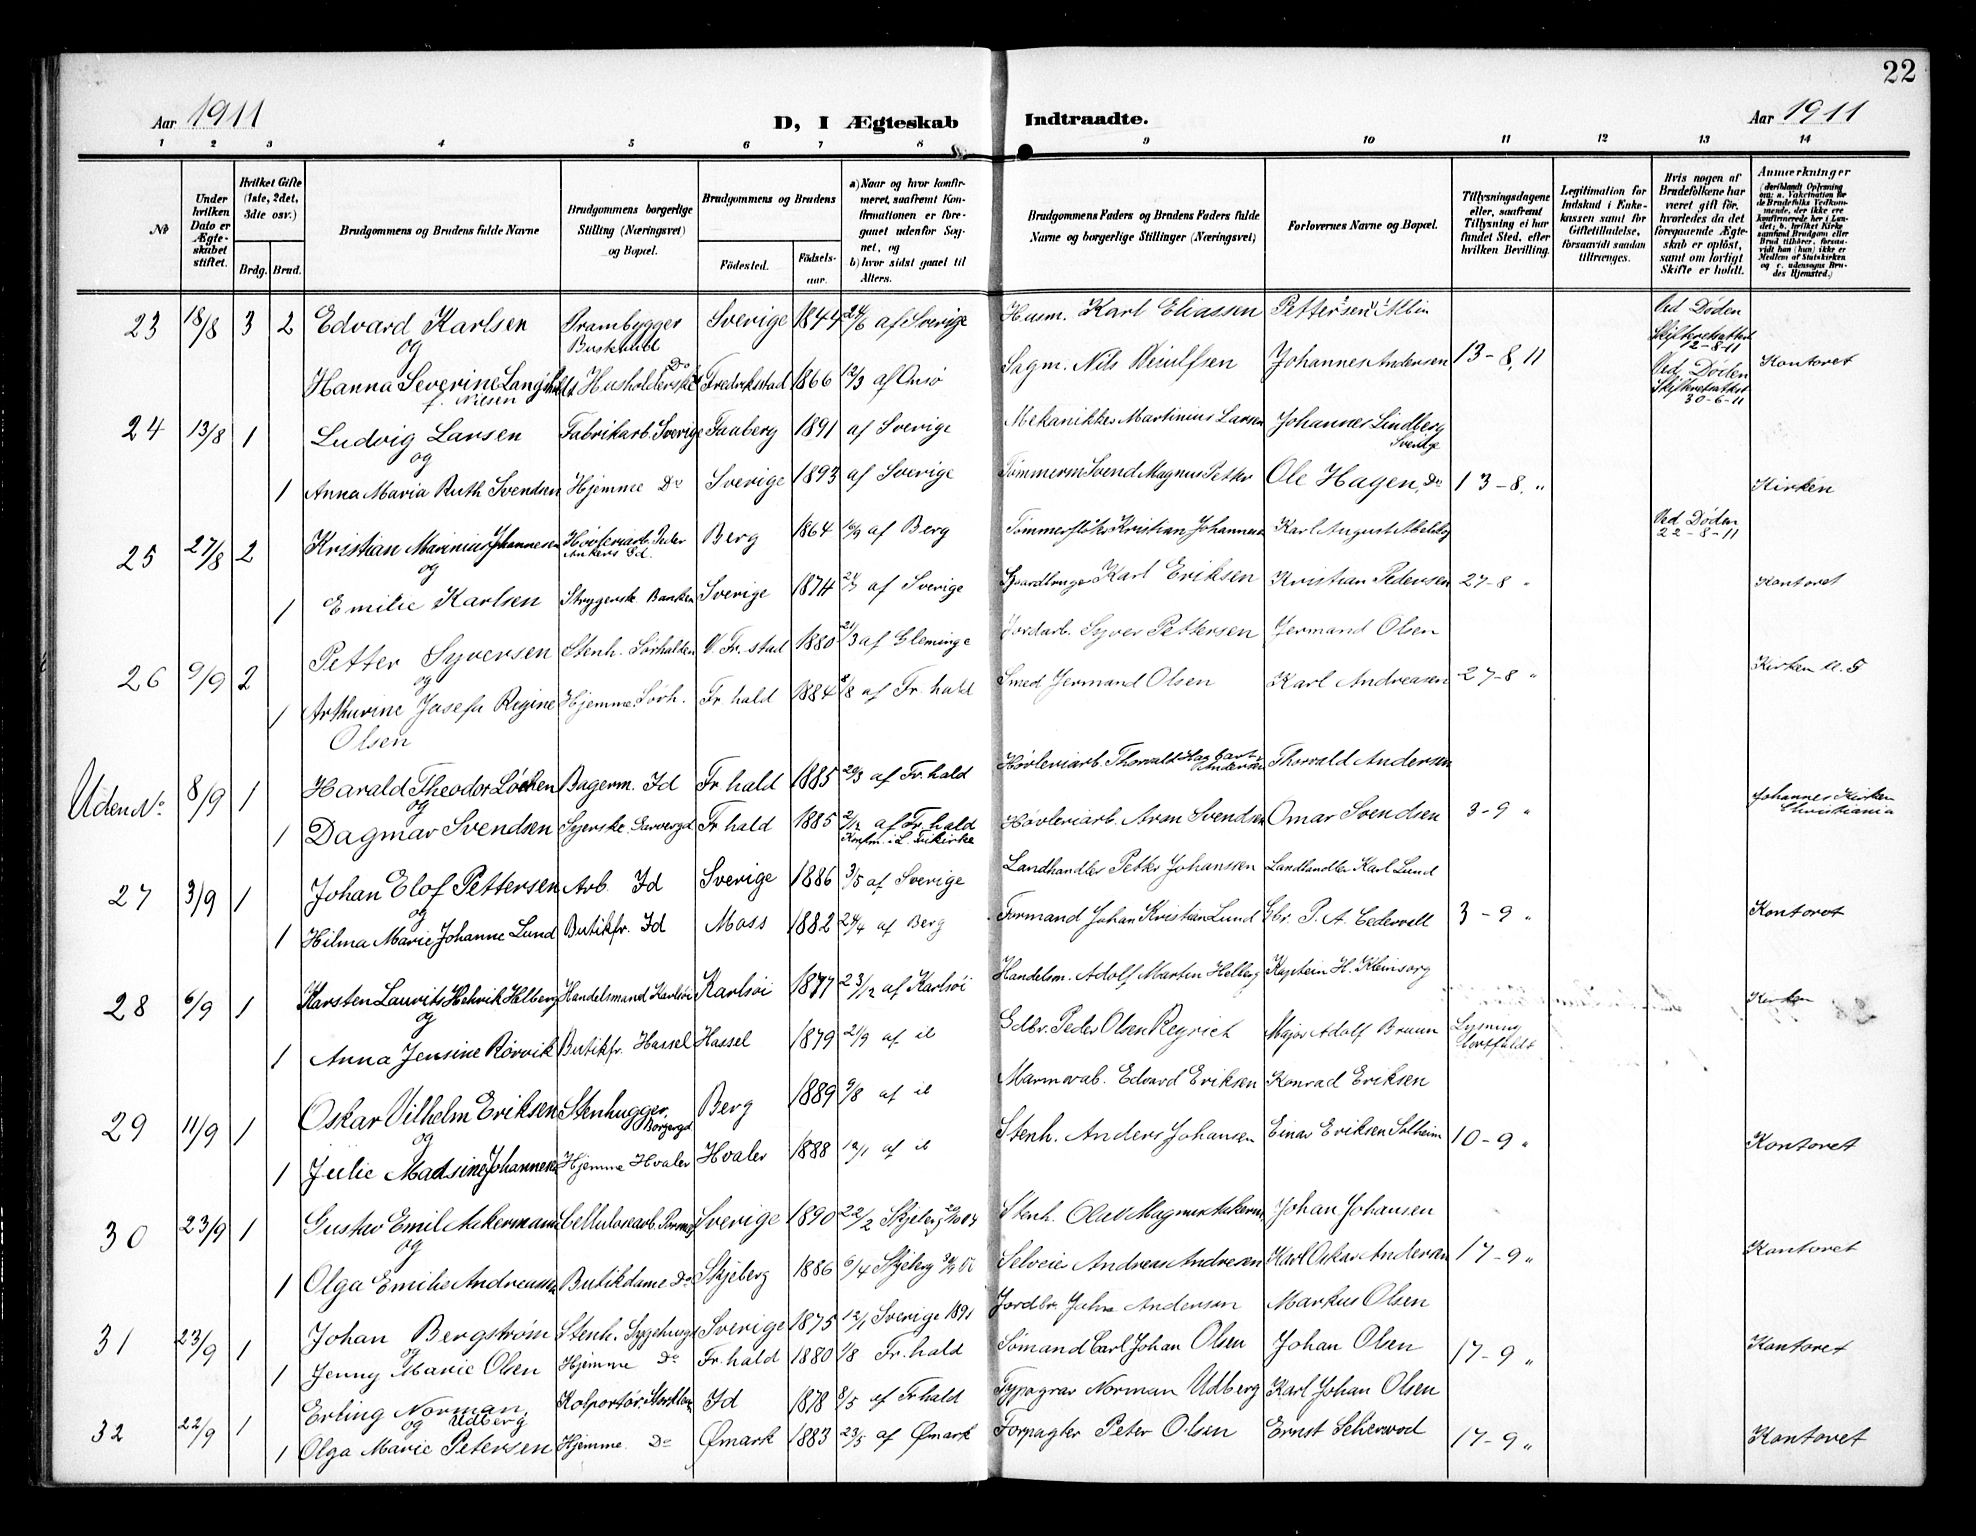 22
Aar 1911 D, I Ægteskab Indtraadte. Aar 1911
1 2 3 4 5 6 7 8 9 10 11 12 13 14
№
Under hvilken Dato er Ægteskabet stiftet.
Hvilket Gifte (1ste, 2det, 3die osv.)
Brdg. Brud.
Brudgommens og Brudens fulde Navne
Brudgommens borgerlige Stilling (Næringsvei) og Bopæl.
Brudgommens og Brudens
Födested. Födselsaar.
a) Naar og hvor konfirmeret, saafremt Konfirmationen er foregaaet udenfor Sognet, og
b) hvor sidst gaaet til Alters.
Brudgommens Faders og Brudens Faders fulde Navne og borgerlige Stillinger (Næringsvei)
Forlovernes Navne og Bopæl.
Tillysningsdagene eller, saafremt Tillysning ei har fundet Sted, efter hvilken Bevilling.
Legitimation for Indskud i Enkekassen samt for Giftetilladelse, forsaavidt saadan tiltrænges.
Hvis nogen af Brudefolkene har været gift før, hvorledes da det foregaaende Ægteskab er oplöst, samt om lovligt Skifte er holdt.
Anmærkninger
23 18/8 3 2 Edvard Karlsen Prambygger Sverige 1844 24/6 af Sverige Husm. Karl Eliassen Ved Døden
og 12-8-11
Hanna Severine f. Nilsen Do Fredrikstad 1866 12/3 af Onsø Sagm. Nils Johannes Andersen 13-8, 11 Ved Døden 30-6-11 Kontoret
24 13/8 1 Ludvig Larsen Fabrikarb. Sverige Faaberg 1891 af Sverige Mekaniker Martinius Larsen Johannes Lindberg Sverige
og
1 Anna Maria Ruth Svendsen Hjemme Do Sverige 1893 af Sverige Tømmerm Svend Magnus Petter Ole Hagen, Do 13-8 " Kirken
25 27/8 2 Kristian Marinius Johannesen Høvleriarb. Peder Ankers Gd. Berg 1864 af Berg Tømmerfløter Kristian Johannesen Karl August Ved Døden 22-8-11
og
1 Emilie Karlsen Strygerske Banken Sverige 1874 af Sverige Karl Eriksen Kristian Pedersen 27-8 " Kontoret
26 9/9 2 Petter Syversen Stenh. Sørhalden V. Fr. stad 1880 21/3 af Glemminge Jordarb. Syver Pettersen Jermand Olsen
og
1 Arthurine Josefa Regine Olsen Hjemme Sørh. Fr. hald 1884 /8 af Fr. hald Smed Jermand Olsen Karl Andreasen 27-8 " Kirken
Uden No. 8/9 1 Harald Theodor Løken Bagerm. Id Fr hald 1885 af Fr. hald Høvleriarb. Thorvald Andersen Thorvald Andersen
og
1 Dagmar Svendsen Syerske Fr. hald 1885 2/12 af Fr. hald Høvleriarb. Aron Svendsen Omar Svendsen 3-9 " Johannes Kirken Christiania
27 3/9 1 Johan Elof Pettersen Arb. Id Sverige 1886 3/5 af Sverige Landhandler Petter Johansen Landhandler Karl Lund
og
1 Hilma Marie Johanne Lund Butikfr. Id Moss 1882 24/4 af Berg Formand Johan Kristian Lund Gbr. P. A. Cedervall 3-9 " Kontoret
28 6/9 1 Karsten Lauvits Helberg Handelsmand Karlsøi Karlsøi 1877 23/12 af Karlsøi Handelsm. Adolf Martin Helberg Kaptein H. Kleinsorg Kirken
og
1 Anna Jensine Rørvik Butikfr. Hassel Hassel 1879 21/9 af il Gdbr. Peder Olsen Major Adolf Braun Lysning bortfaldt
29 11/9 1 Oskar Vilhelm Eriksen Stenhugger, Berg 1889 9/8 af il Marmorab. Edvard Eriksen Konrad Eriksen
og
1 Julie Madsine Johannesen Hjemme Hvaler Hvaler 1888 12/1 af il Stenh. Anders Johansen Einar Eriksen Solheim 10-9 " Kontoret
30 23/9 1 Gustav Emil Aakermann Cellulosearb. Sverige 1890 22/2 Skjeberg Stenh. Olav Magnus Johan Johansen
og
1 Olga Emilie Andreassen Butikdame Do Skjeberg 1886 6/4 Skjeberg Selveier Andreas Andresen Karl Oskar Andersen 17-9 " Kontoret
31 23/9 1 Johan Bergstrøm Stenh. Sygehusgd Sverige 1875 12/1 Sverige 1891 Jordbr. John Anderson Markus Olsen
og
1 Jenny Marie Olsen Hjemme Do Fr. hald 1880 /8 Fr. hald Sømand Carl Johan Olsen Johan Olsen 17-9 " Kontoret
32 22/9 1 Erling Norman Udberg Kolportør Id 1878 8/5 af Fr hald Typograv Norman Udberg Karl Johan Olsen
og
1 Olga Marie Petersen Hjemme Do Ømark 1883 23/5 af Ømark Forpagter Peter Olsen Ernst 17-9 " Kontoret